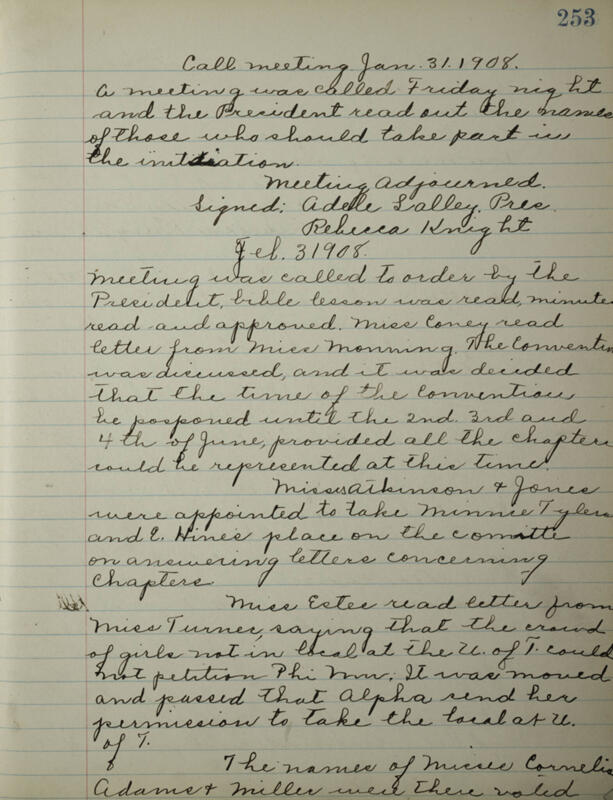 253
Call meeting Jan. 31. 1908.
A meeting was called Friday night
and the President read out the names
of those who should take part in
the initiation.
Meeting adjourned.
Signed: Adele Salley. Pres.
Rebecca Knight
Feb. 31908.
Meeting was called to order by the
President, bible lesson was read, minutes
read and approved. Miss Coney read
letter from Miss Monning. The Convention
was discussed, and it was decided
that the time of the convention
be posponed until the 2nd. 3rd and
4th of June, provided all the chapters
could be represented at this time.
Misses Atkinson & Jones
were appointed to take Minnie Tylers
and E. Hines place on the comitte
on answering letters concerning
Chapters.
Miss Estes read letter from
Miss Turner, saying that the crowd
of girls not in local at the U. of T. could
not petition Phi Mu. It was moved
and passed that Alpha send her
permission to take the local at U.
of T.
The names of Misses Cornelia
Adams & Miller were then voted